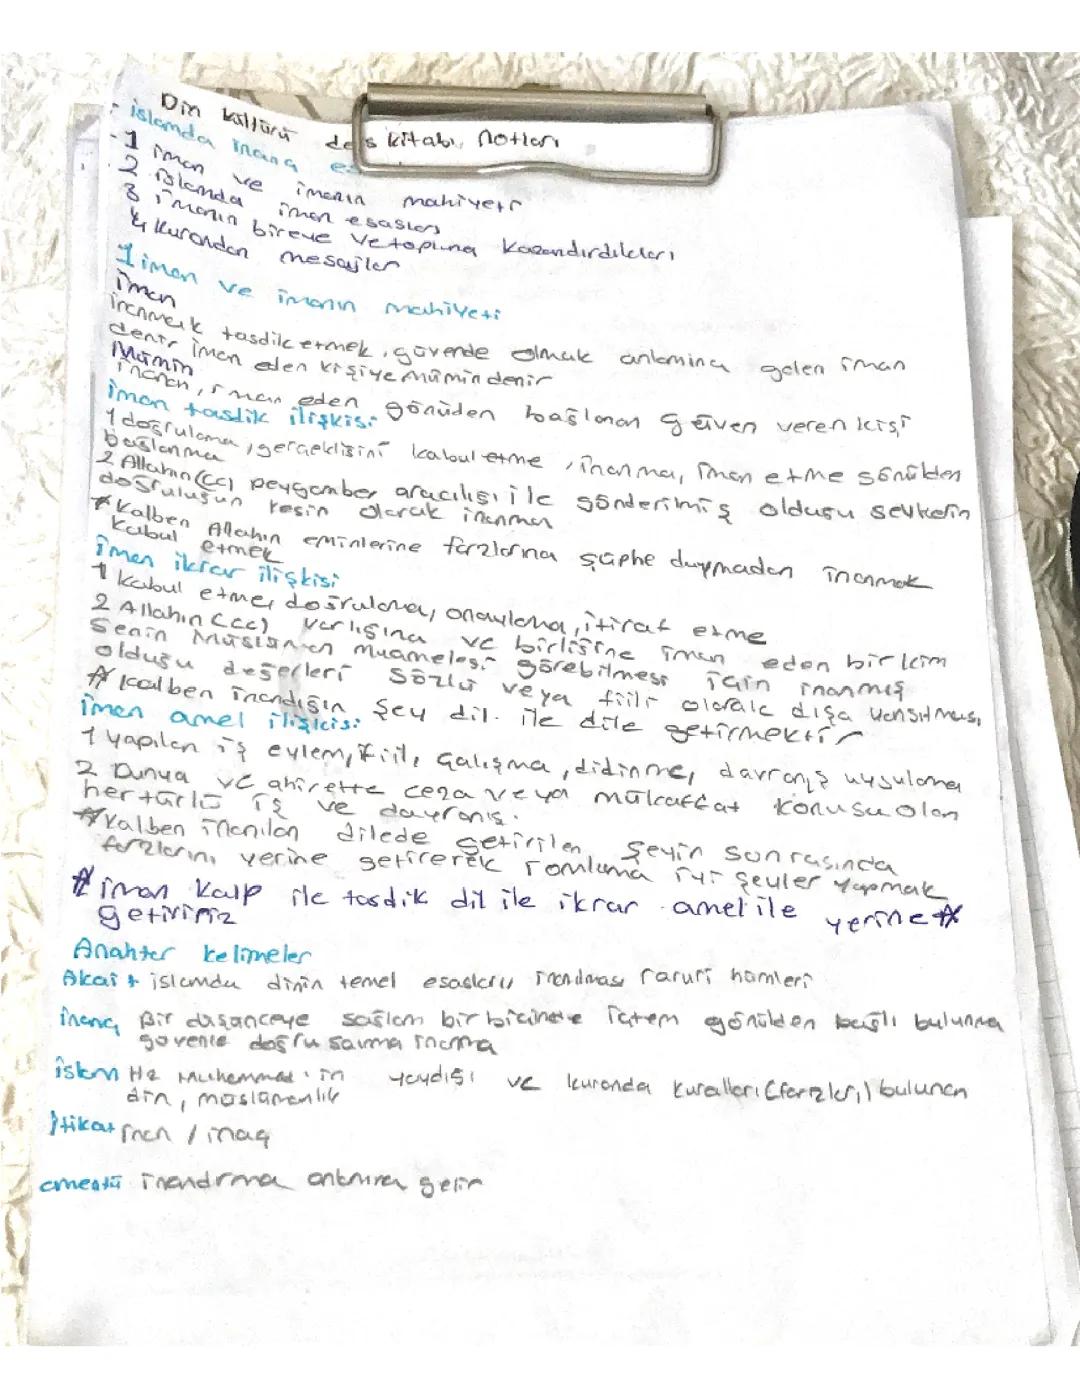 Din kültürü ders kitabı notları
- islamda inanç es
- 1 iman ve imanın mahiyeti
2 islamda iman esasları
3 imanın bireye ve topluma kazandırdıkları
4 Kurandan mesajlar
1 iman ve imanın mahiyeti
iman
inanmak tasdik etmek, güvende olmak anlamına gelen iman
denir iman eden kişiye mümin denir
Mümin
inanan, iman eden gönüden bağlanan güven veren kişi
iman tasdik ilişkisi
1 doğrulama, gerçekliğini kabul etme, inanma, iman etme gönülden
bağlanma
2 Allahın (cc) peygamber aracılığı ile gönderilmiş olduğu
doğruluğun kesin olarak inanman
* Kalben Allahın eminlerine farzlarına şüphe duymadan inanmak
kabul etmek
iman ikrar ilişkisi
1 kabul etme, doğrulama, onaylama, itiraf etme
2 Allahın (cc) varlığına ve birliğine iman eden bir kim
senin Müslüman muamelesi görebilmesi için inanmış
olduğu değerleri sözlü veya fiili olarak dışa yansıtması
* kalben inandığın şey dil ile dile getirmektir
iman amel ilişkisi
1 yapılan iş eylem, fiil, çalışma, didinme, davranış uygulama
2 Dünya ve ahirette ceza veya mükaffat konusu olan
her türlü iş ve davranış.
* Kalben inanılan dilede getirilen şeyin sonrasında
farzlarını yerine getirerek iyi şeyler yapmak
* iman kalp ile tasdik dil ile ikrar amel ile yerine *
getiririz
Anahter kelimeler
Akait islamda dinin temel esasları inanılması
inanç Bir düşünceye sağlam bir biçimde içtem gönülden bağlı bulunma
güvenle doğru sanma inanma
islam Hz Muhammed'in yaydığı ve kuranda kuralları (farzları) bulunan
din, müslümanlık
itikat inan / inaç
amentü inandırma anlamına gelir